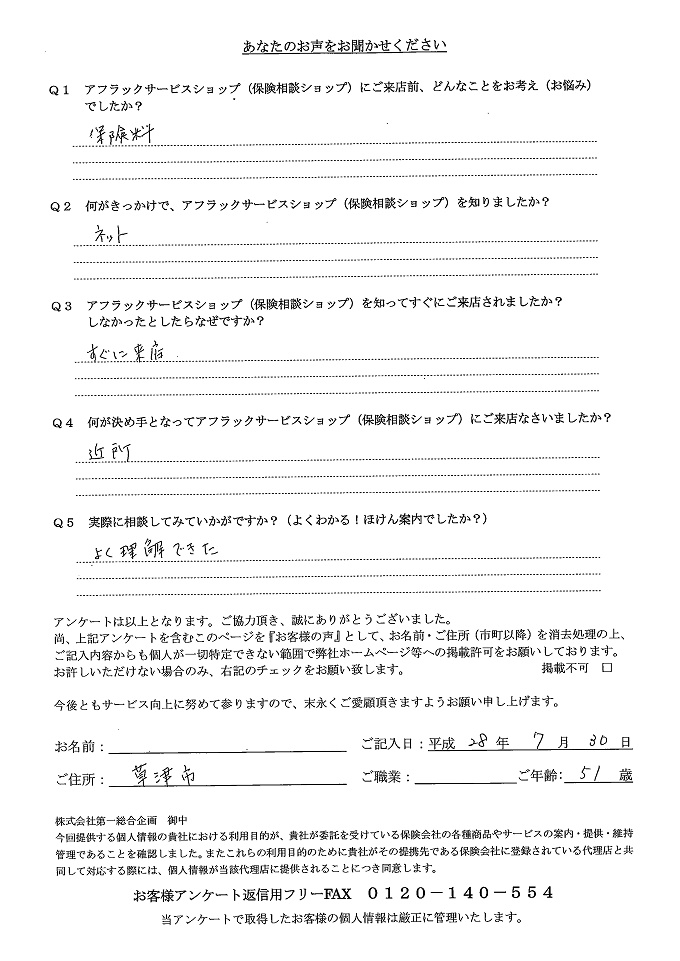 あなたのお声をお聞かせください
Q1 アフラックサービスショップ（保険相談ショップ）にご来店前、どんなことをお考え（お悩み）
でしたか？
保険料
Q2 何がきっかけで、アフラックサービスショップ（保険相談ショップ）を知りましたか？
ネット
Q3 アフラックサービスショップ（保険相談ショップ）を知ってすぐにご来店されましたか？
しなかったとしたらなぜですか？
すぐに来店
Q4 何が決め手となってアフラックサービスショップ（保険相談ショップ）にご来店なさいましたか？
近所
Q5 実際に相談してみていかがですか？（よくわかる！ほけん案内でしたか？）
よく理解できた
アンケートは以上となります。ご協力頂き、誠にありがとうございました。
尚、上記アンケートを含むこのページを『お客様の声』として、お名前・ご住所（市町以降）を消去処理の上、
ご記入内容からも個人が一切特定できない範囲で弊社ホームページ等への掲載許可をお願いしております。
お許しいただけない場合のみ、右記のチェックをお願い致します。 掲載不可 □
今後ともサービス向上に努めて参りますので、末永くご愛顧頂きますようお願い申し上げます。
お名前： ご記入日：平成 28 年 7 月 30 日
ご住所： 草津市 ご職業： ご年齢： 51 歳
株式会社第一総合企画 御中
今回提供する個人情報の貴社における利用目的が、貴社が委託を受けている保険会社の各種商品やサービスの案内・提供・維持
管理であることを確認しました。またこれらの利用目的のために貴社がその提携先である保険会社に登録されている代理店と共
同して対応する際には、個人情報が当該代理店に提供されることにつき同意します。
お客様アンケート返信用フリーFAX ０１２０－１４０－５５４
当アンケートで取得したお客様の個人情報は厳正に管理いたします。